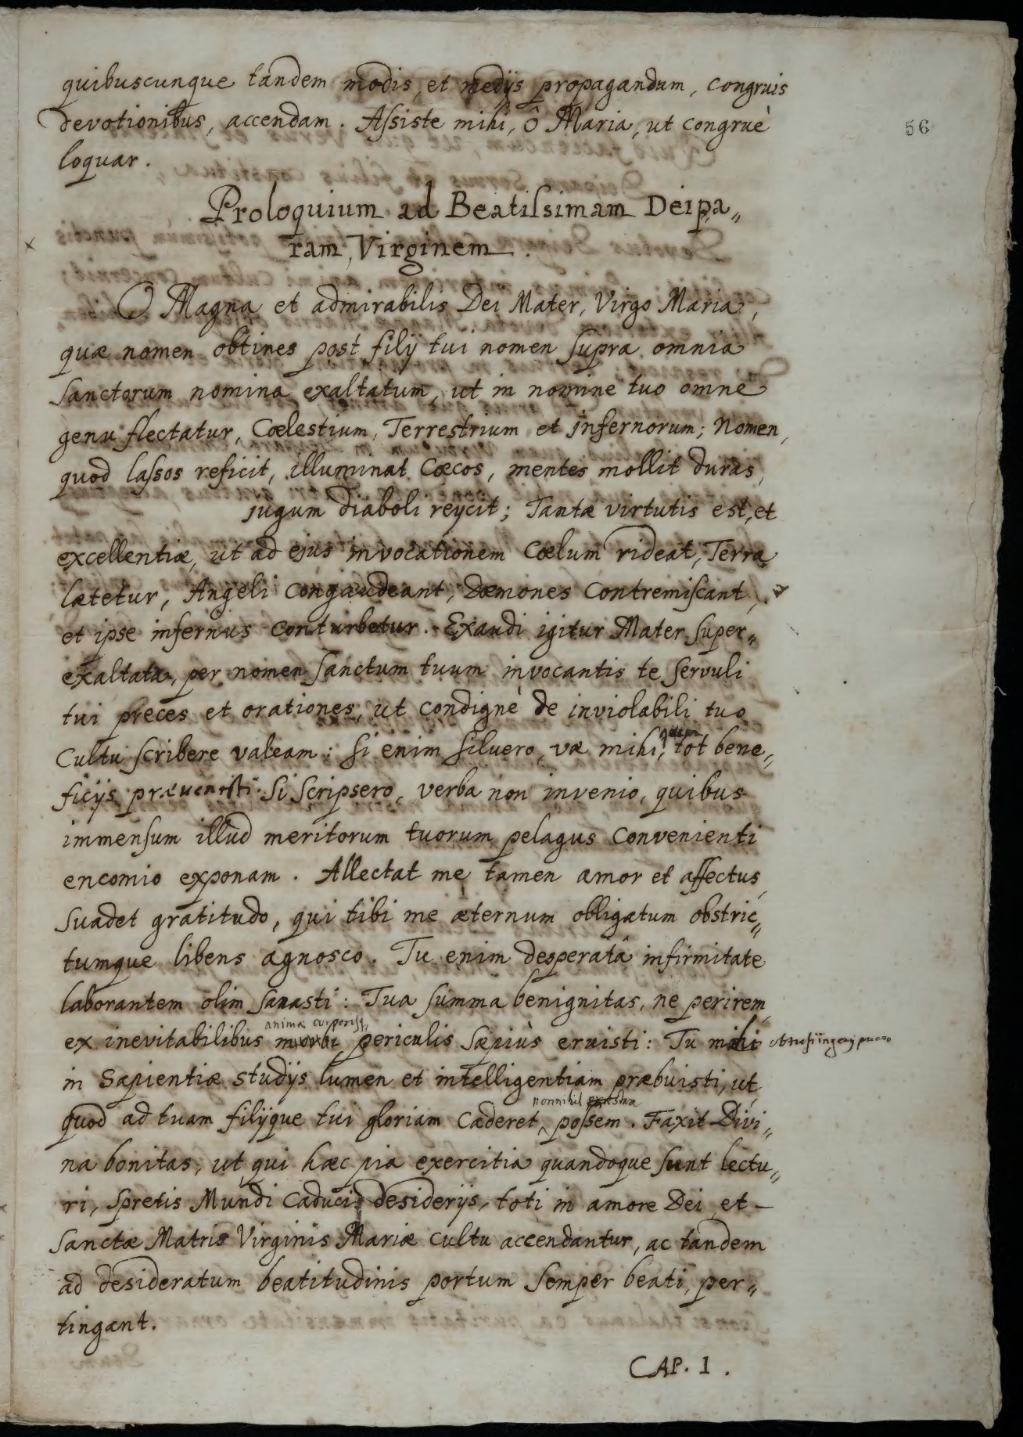 quibuscunque tandem modis, et medijs propagandum, congruis
devotionibus, accendam. Aſsiste mihi, ô Maria, ut congruè
loquar.
56
Proloquium ad Beatiſsimam Deipa„
ram Virginem.
O Magna et admirabilis Dei Mater, Virgo Maria,
quæ nomen obtines post filij tui nomen ſupra omnia
Sanctorum nomina exaltatum, ut in nomine tuo omne
genu flectatur, Cœlestium, Terrestrium et infernorum; Nomen,
quod laſsos reficit, illuminat Cœcos, mentes mollit duras,
jugum diaboli reijcit; Tantæ virtutis est, et
excellentiæ, ut ad ejus invocationem Cœlum rideat, Terra
lætetur, Angeli congaudeant, Dæmones Contremiſcant,
et ipse infernus conturbetur. Exaudi igitur Mater ſuper„
exaltata, per nomen ſanctum tuum invocantis te ſervuli
tui preces et orationes, ut condignè de inviolabili tuo
Cultu ſcribere valeam: ſi enim ſiluero, væ mihi, quem tot bene„
ficijs prævenisti. Si Scripsero, verba non invenio, quibus
immenſum illud meritorum tuorum pelagus convenienti
encomio exponam. Allectat me tamen amor et affectus,
suadet gratitudo, qui tibi me æternum obligatum obstric„
tumque libens agnosco. Tu enim desperatâ infirmitate
laborantem olim ſanasti: Tua ſumma benignitas, ne perirem
ex inevitabilibus animæ corporisq, periculis sæpiùs eruisti: Tu mihi
in Sapientiæ studijs lumen et intelligentiam præbuisti, ut
quod ad tuam filijque tui gloriam caderet, nonnihil poſsem. Faxit Divi„
na bonitas, ut qui hæc pia exercitia quandoque ſunt lectu„
ri, spretis Mundi Caduci desiderijs, toti in amore Dei et
Sanctæ Matris Virginis Mariæ cultu accendantur, ac tandem
ad desideratum beatitudinis portum semper beati per„
tingant.
CAP. 1.